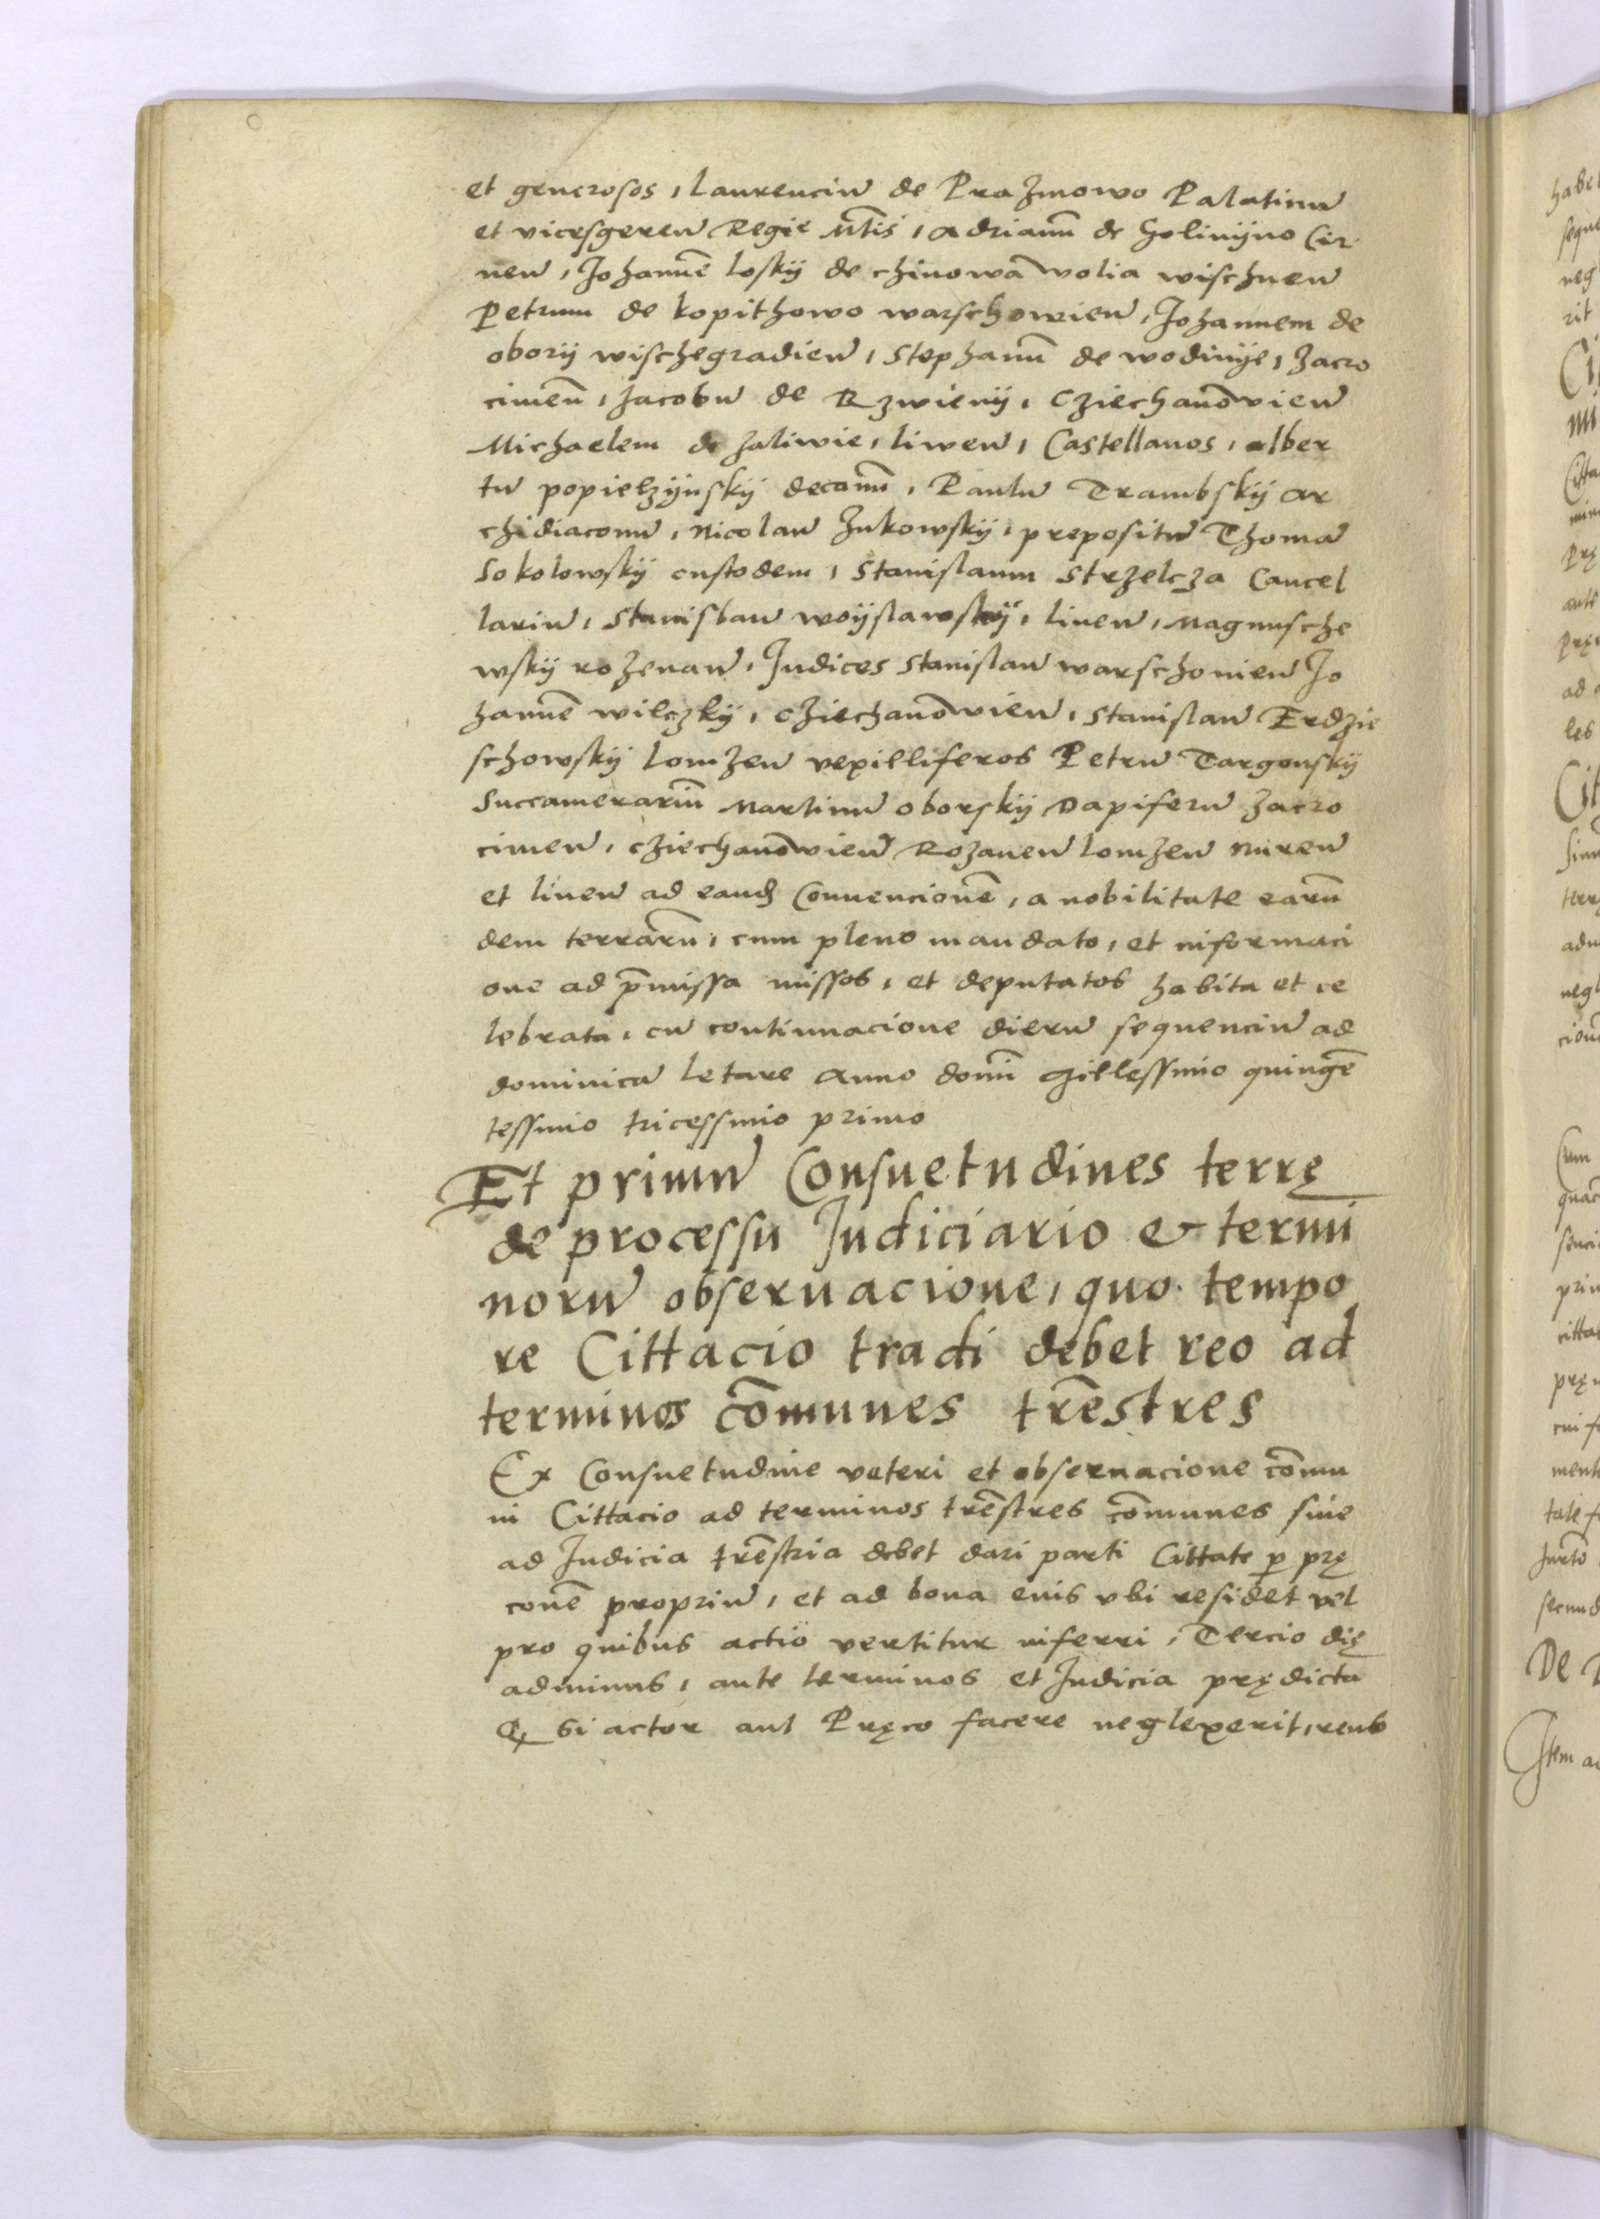 et generosos, laurenciu͂ de Prazmowo Palatinu͂
et vicesgeren͂ Regie Mt͂is, Adrianu͂ de Golinÿno Cir
nen͂, Johanne͂ loskÿ de chinowa͂ wolia wischnen͂
Petrum de kopithowo warschowien͂, Johannem de
oborÿ wischegradien͂, Stephanu͂ de wodinÿe, zacro
cimen͂, Jacobu͂ de Rzwienÿ, Cziechano͂wien͂
Michaelem de zaliwie, liwen͂, Castellanos, alber
tu͂ popielzÿnskÿ decanu͂, Paulu͂ Trambskÿ ar
chidiaconu͂, Nicolau͂ Zukowskÿ, prepositu͂ Thoma͂
Sokolowskÿ custodem, Stanislaum Strzelcza Cancel
lariu͂, Stanislau͂ woÿslawskÿ, liuen͂, Magnusche
wskÿ rozenan͂, Judices Stanislau͂ warschouien͂ Jo
hanne͂ wilczkÿ, Cziechano͂wien͂, Stanislau͂ Erdzie
schowskÿ lomzen͂ vexilliferos Petru͂ Targonskÿ
Succamerariu͂ Martinu͂ oborskÿ Dapiferu͂ zacro
cimen͂, cziechano͂wien͂ Rozanen͂ lomzen͂ Nuren͂
et liuen͂ ad eandʒ Conuencione͂, a nobilitate earu͂
dem terraru͂, cum pleno mandato, et informaci
one ad p͂missa missos, et deputatos habita et ce
lebrata, cu͂ continuacione dieru͂ sequenciu͂ ad
dominica͂ letare Anno domi͂ Millessimo quinge͂
tessimo tricessimo primo
Et primu͂ Consuetudines terrę
de processu Judiciario & termi
noru͂ obseruacione, quo tempo
re Cittacio tradi debet reo ad
terminos co͂munes tre͂stres
Ex Consuetudine veteri et obseruacione co͂mu
ni Cittacio ad terminos tre͂stres co͂munes siue
ad Judicia tre͂stria debet dari parti Cittate ꝑ prę
cone͂ propriu͂, et ad bona euis vbi residet vel
pro quibus actio vertitur inferri, Tercio dię
adminus, ante terminos et Judicia prędicta
Qꝫ Si actor aut Pręco facere neglexerit, reus